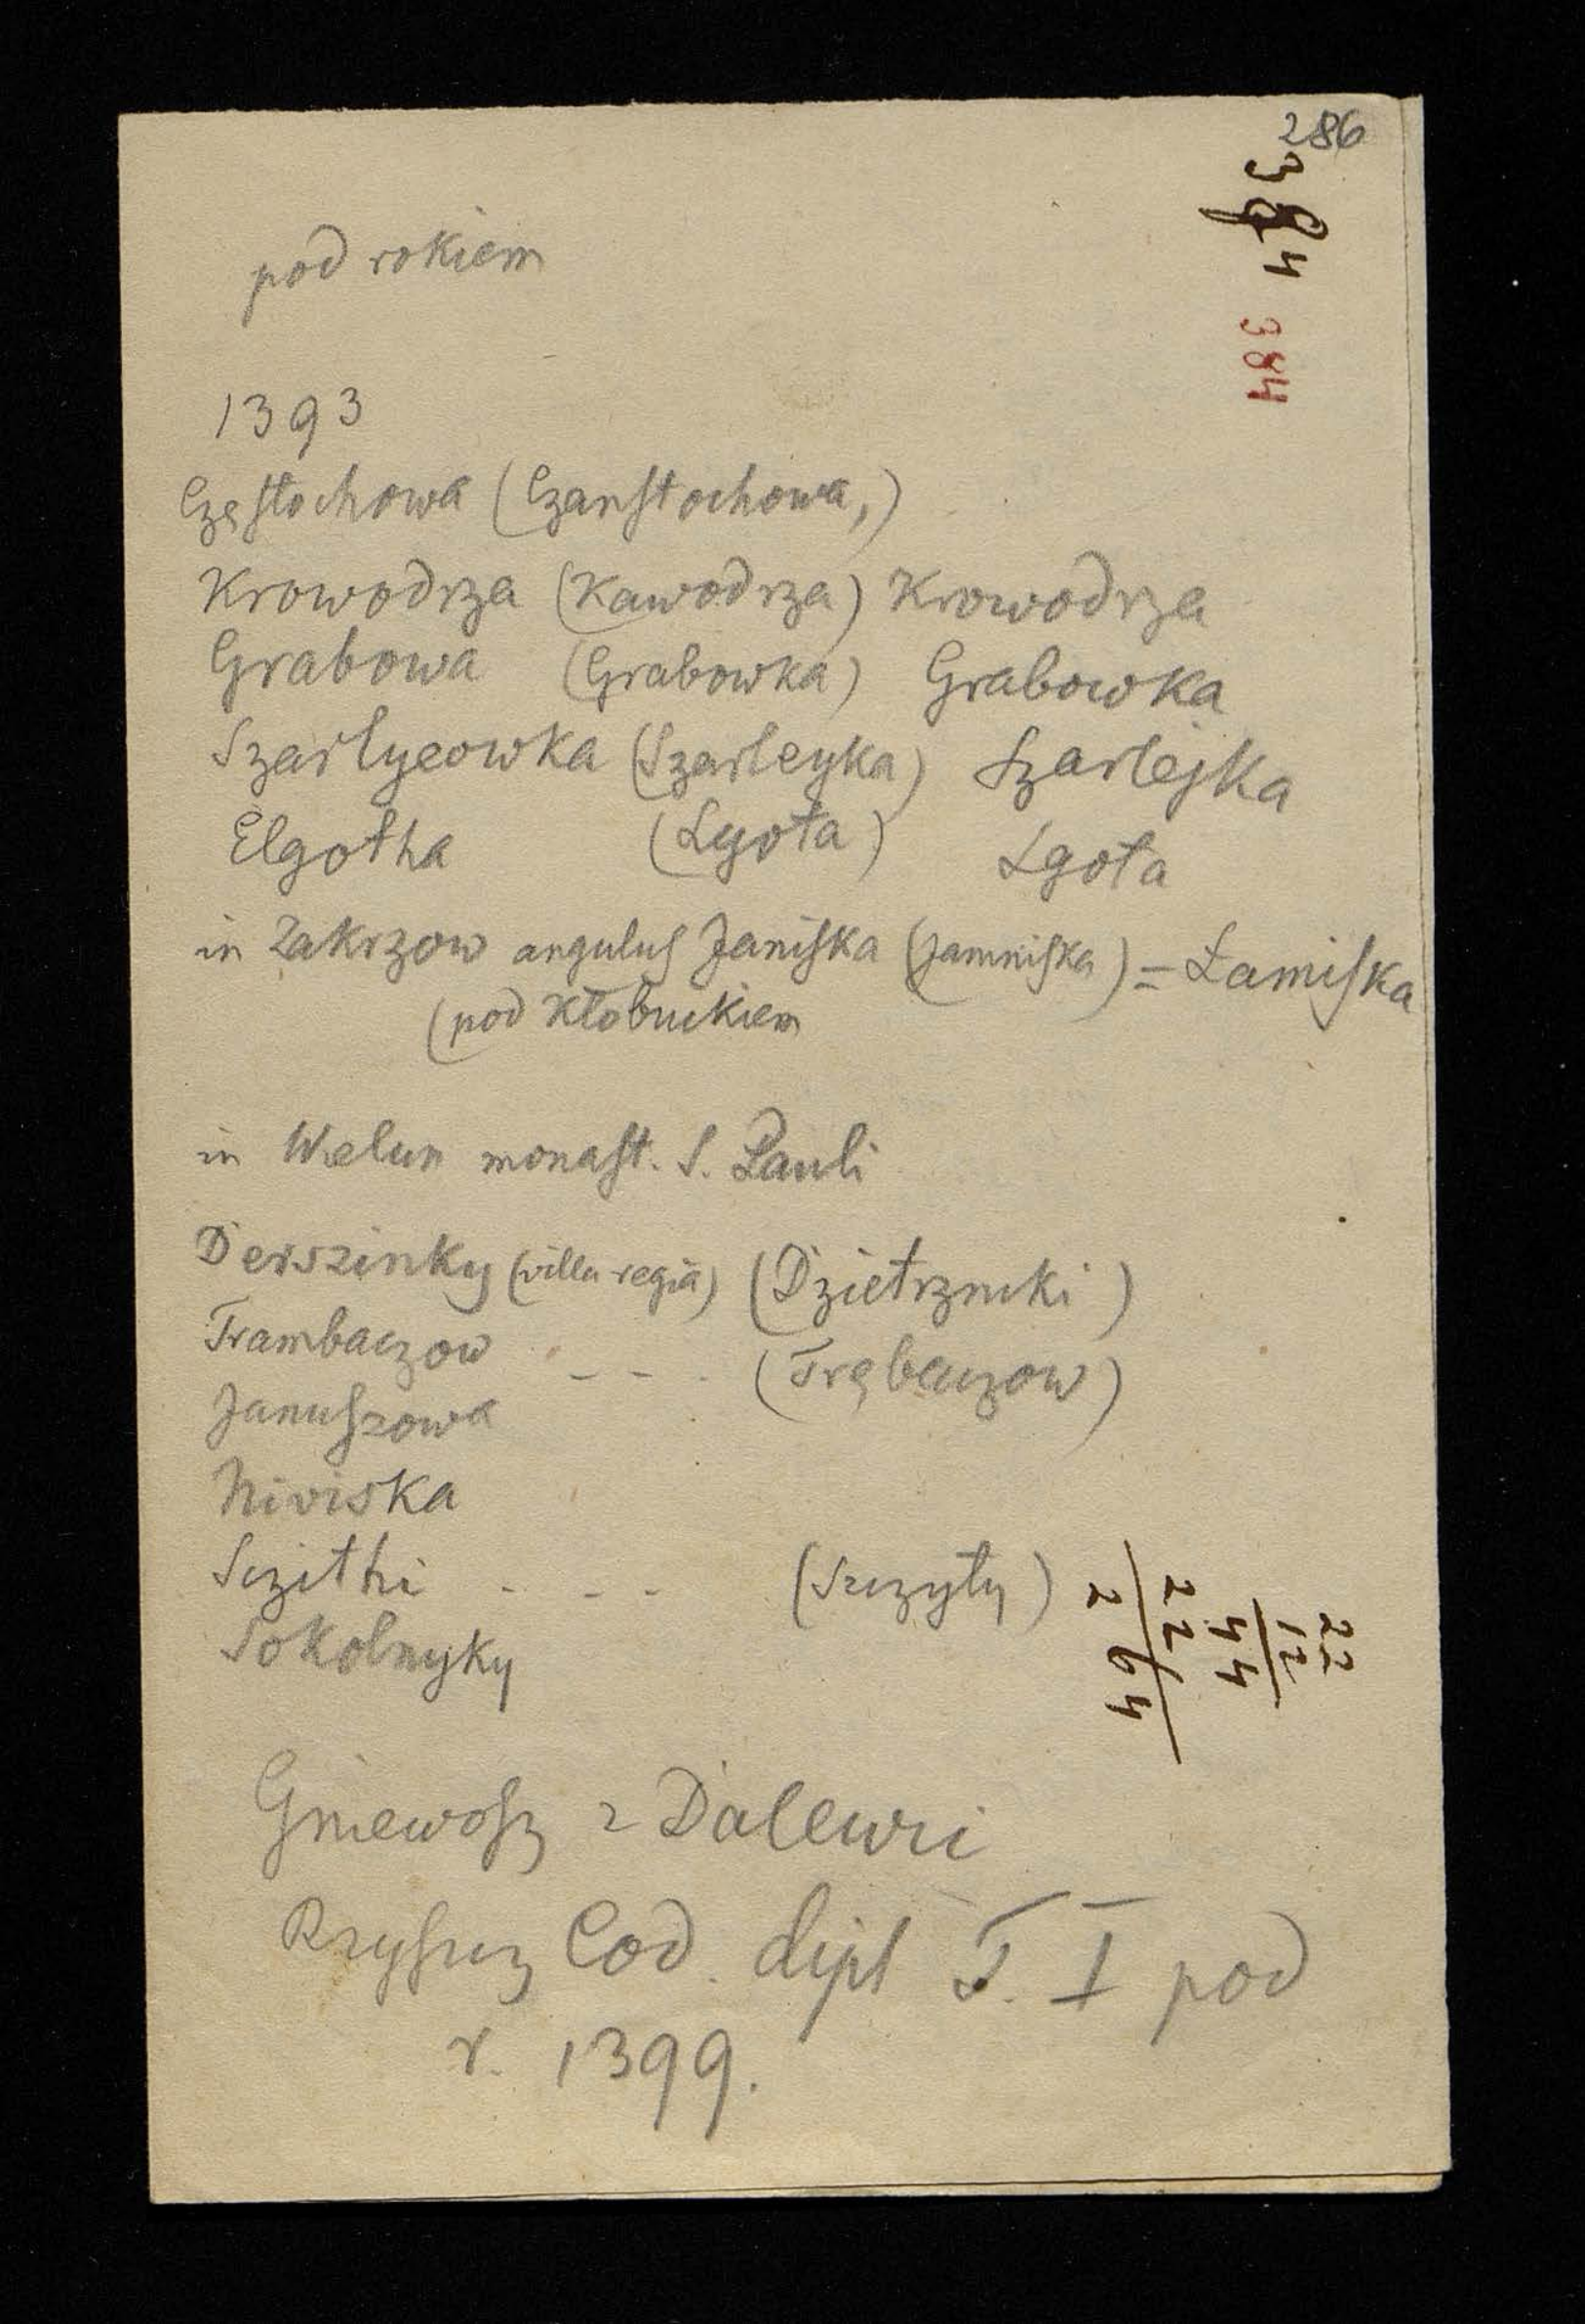 286
384
384
pod rokiem
1393
Częstochowa (Czanstochowa,)
Krowodrza (Kawodrza) Krowodrza
Grabowa (Grabowka) Grabowka
Szarlyeowka (Szarleyka) Szarlejka
Elgotha (Lgota) Lgota
in Zakrzow angulus Janiska (Jamniska) = Łamiska
(pod Kłobuckiem
in Wielun monast. S. Pauli
Derszinky (villa regia) (Dzietrzniki)
Trambaczow - - . (Trębaczow)
Januszowa
Niviska
Sczithi - - - (Szczyty)
Sokolnyky
22
12
44
22
264
Gniewosz z Dalewic
Rzyszcz Cod. dipl T. I pod
r. 1399.